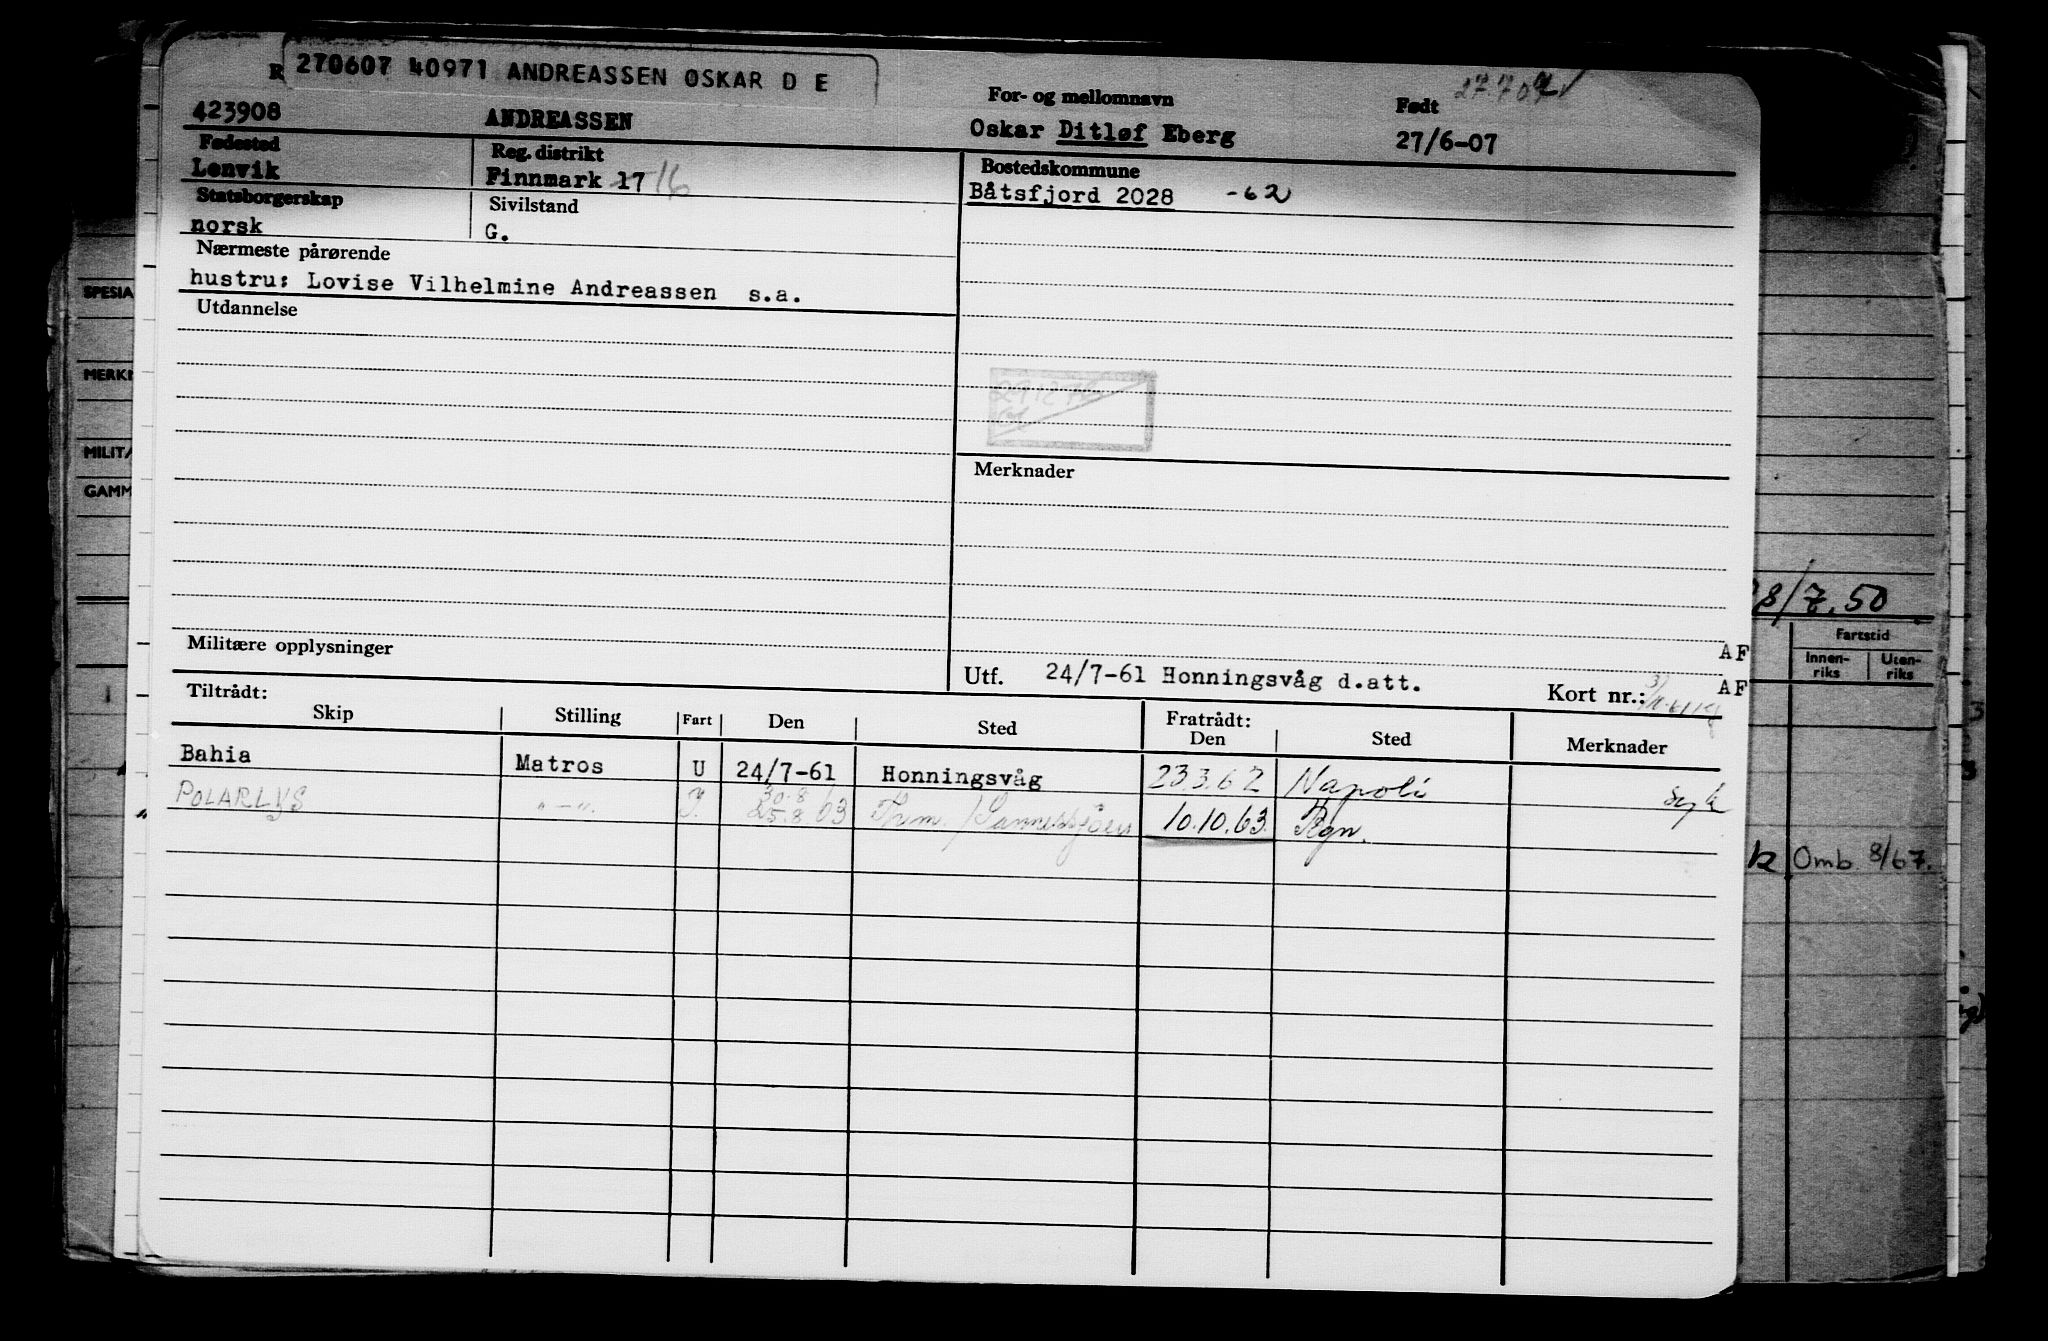 R 270607 40971 ANDREASSEN OSKAR D E
27.7.07
423908 ANDREASSEN
For- og mellomnavn
Oskar Ditløf Eberg
Født
27/6-07
Fødested
Lenvik
Reg. distrikt
Finnmark 17 16
Bostedskommune
Båtsfjord 2028 -62
Statsborgerskap
norsk
Sivilstand
G.
Nærmeste pårørende
hustru: Lovise Vilhelmine Andreassen s.a.
Utdannelse
Merknader
Militære opplysninger
Utf. 24/7-61 Honningsvåg d.att.
Kort nr.:
Tiltrådt:
Skip Stilling Fart Den Sted
Fratrådt:
Den Sted Merknader
Bahia Matros U 24/7-61 Honningsvåg 23.3.62 Napoli syk
POLARLYS " - " 30.8 25.8.63 10.10.63
SPESIA
MERKN
MILITÆ
GAMM
8/7.50
Fartstid
Innen-
riks
Uten-
riks
AF
AF
k Omb. 8/67.